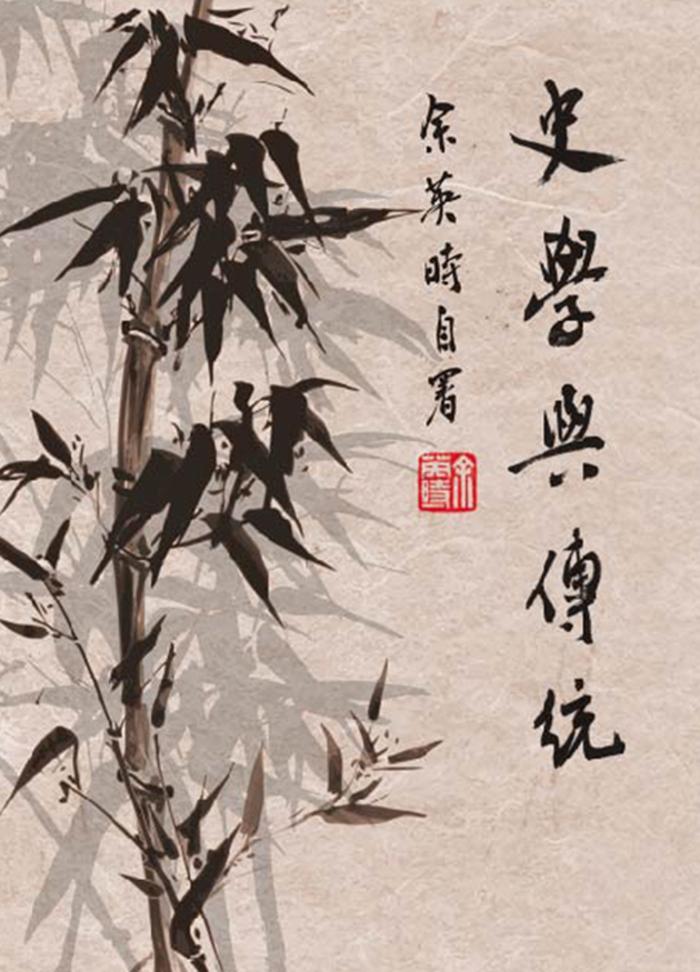 史學與傳統
余英時自署
余英時